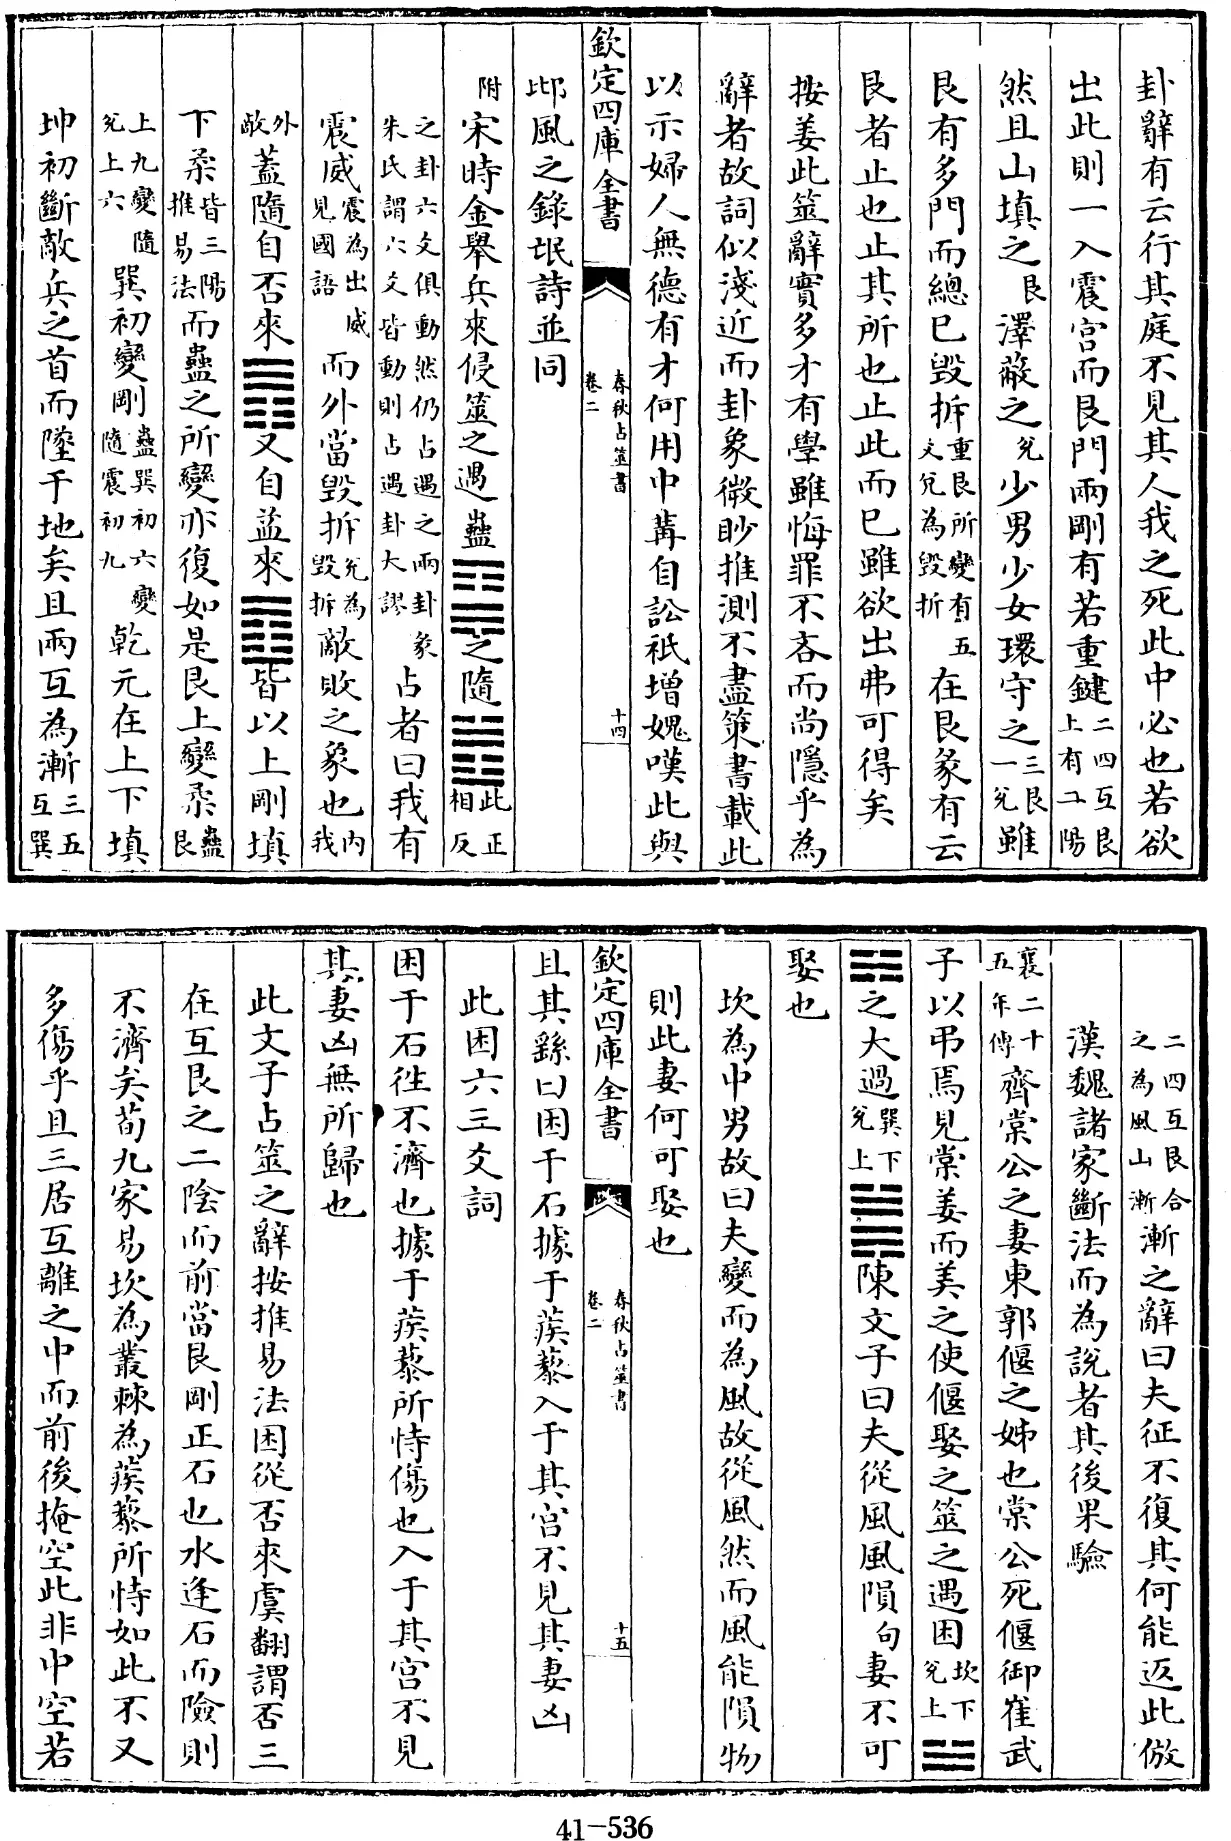 卦辭有云行其庭不見其人我之死此中必也若欲
出此則一入震宮而艮門兩剛有若重鍵二四互艮上有二陽
然且山填之艮澤蔽之兌少男少女環守之三艮一兌雖
艮有多門而總已毀拆重艮所變有五爻兌為毀折在艮彖有云
艮者止也止其所也止此而已雖欲出弗可得矣
按姜此筮辭實多才有學雖悔罪不吝而尚隱乎為
辭者故詞似淺近而卦象微眇推測不盡策書載此
以示婦人無德有才何用中冓自訟祇增媿嘆此與
欽定四庫全書 春秋占筮書 卷二 十四
邶風之錄氓詩並同
附宋時金舉兵來侵筮之遇蠱䷑之隨䷐此正相反
之卦六爻俱動然仍占遇之兩卦彖朱氏謂六爻皆動則占遇卦大謬占者曰我有
震威震為出威見國語而外當毀折兌為毀折敵敗之象也內我
外敵蓋隨自否來䷋又自益來䷩皆以上剛填
下柔皆三陽推易法而蠱之所變亦復如是艮上變柔蠱艮
上九變隨兌上六巽初變剛蠱巽初六變隨震初九乾元在上下填
坤初斷敵兵之首而墜于地矣且兩互為漸三五互巽
二四互艮合之為風山漸漸之辭曰夫征不復其何能返此倣
漢魏諸家斷法而為說者其後果驗
襄二十五年傳齊棠公之妻東郭偃之姊也棠公死偃御崔武
子以弔焉見棠姜而美之使偃娶之筮之遇困坎下兌上䷮
之大過巽下兌上䷛陳文子曰夫從風風隕句妻不可
娶也
坎為中男故曰夫變而為風故從風然而風能隕物
則此妻何可娶也
欽定四庫全書 春秋占筮書 卷二 十五
且其繇曰困于石據于蒺藜入于其宮不見其妻凶
此困六三爻詞
困于石往不濟也據于蒺藜所恃傷也入于其宮不見
其妻凶無所歸也
此文子占筮之辭按推易法困從否來虞翻謂否三
在互艮之二陰而前當艮剛正石也水逢石而險則
不濟矣荀九家易坎為叢棘為蒺藜所恃如此不又
多傷乎且三居互離之中而前後掩空此非中空若
41-536